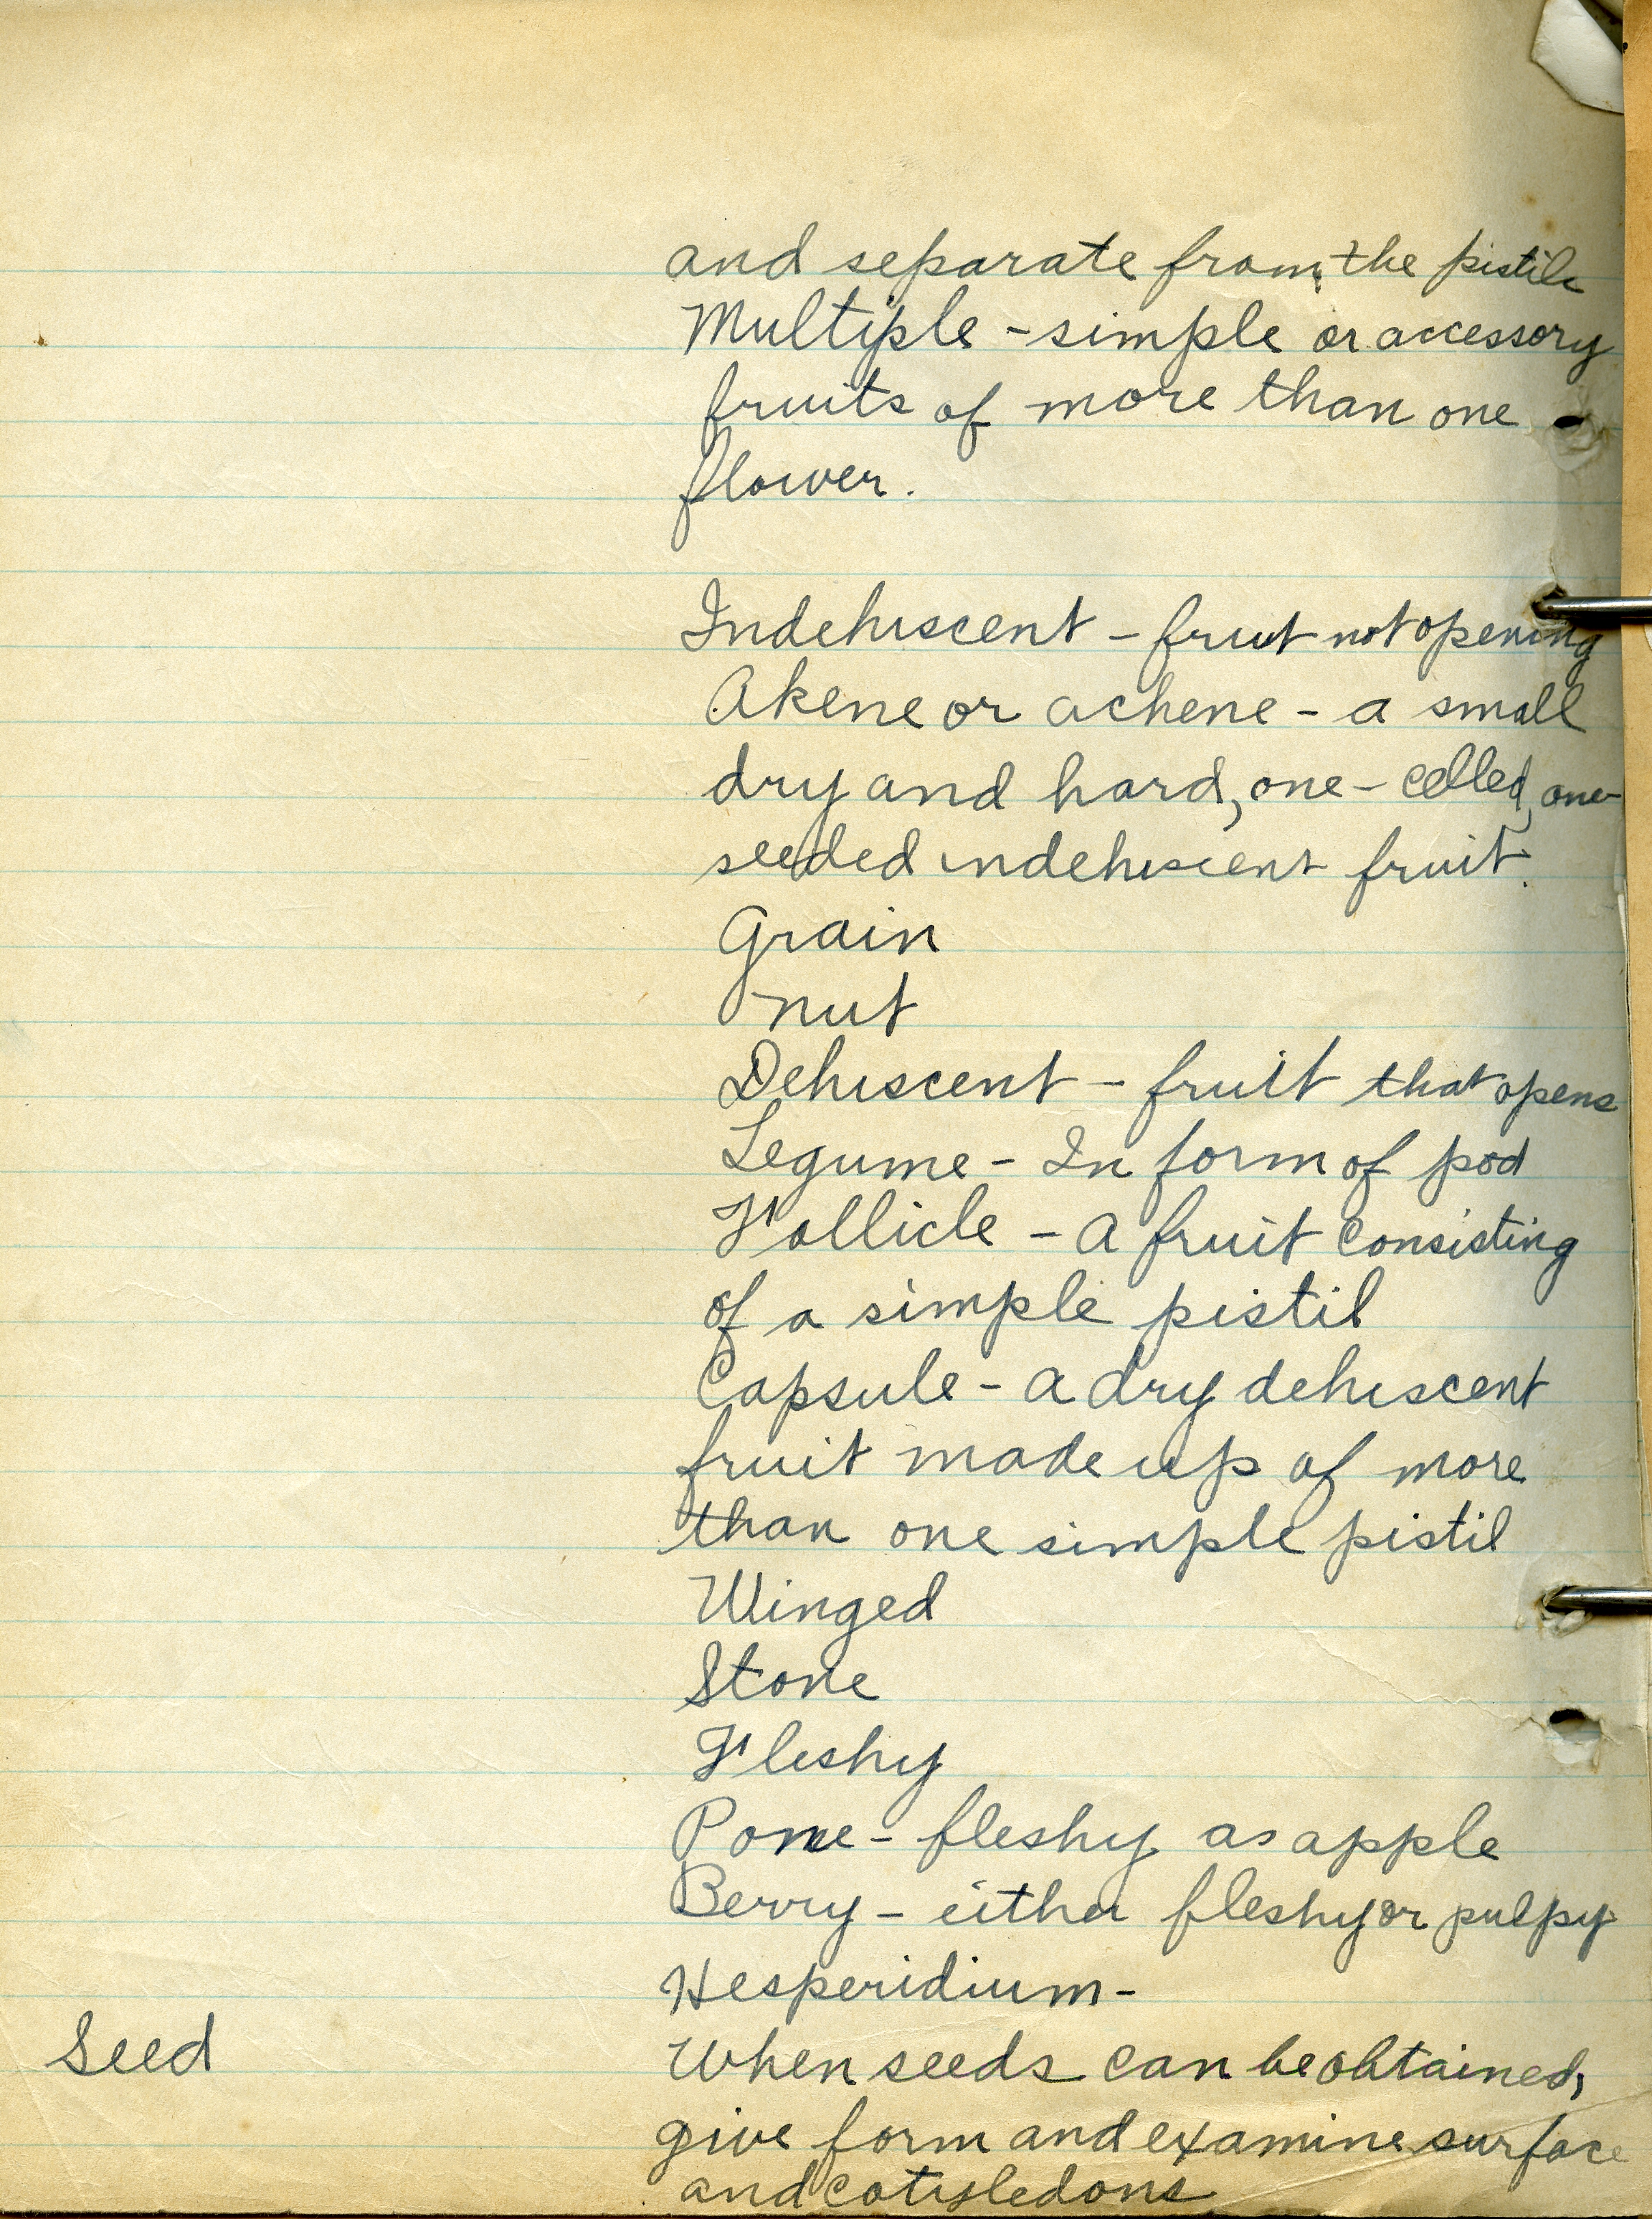 and separate from the pistils
Multiple - simple or accessory
fruits of more than one
flower.
Indehiscent - fruit not opening
Akene or achene - a small
dry and hard, one-celled, one-
seeded indehiscent fruit.
Grain
nut
Dehiscent - fruit that opens
Legume - In form of pod
Follicle - a fruit consisting
of a simple pistil
Capsule - a dry dehiscent
fruit made up of more
than one simple pistil
Winged
Stone
Fleshy
Pome - fleshy as apple
Berry - either fleshy or pulpy
Hesperidium -
Seed When seeds can be obtained,
give form and examine surface
and cotyledons